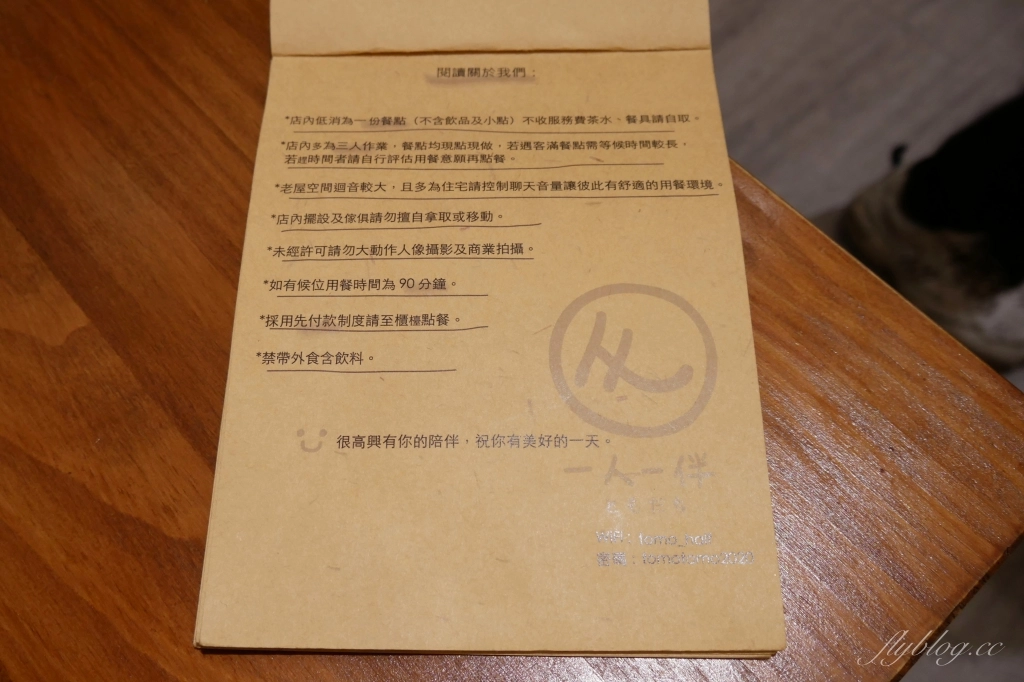 閱讀關於我們：
*店內低消為一份餐點（不含飲品及小點）不收服務費茶水、餐具請自取。
*店內多為三人作業，餐點均現點現做，若遇客滿餐點需等候時間較長，
若趕時間者請自行評估用餐意願再點餐。
*老屋空間迴音較大，且多為住宅請控制聊天音量讓彼此有舒適的用餐環境。
*店內擺設及傢俱請勿擅自拿取或移動。
*未經許可請勿大動作人像攝影及商業拍攝。
*如有候位用餐時間為 90 分鐘。
*採用先付款制度請至櫃檯點餐。
*禁帶外食含飲料。
很高興有你的陪伴，祝你有美好的一天。
一人一伴
flyblog.cc